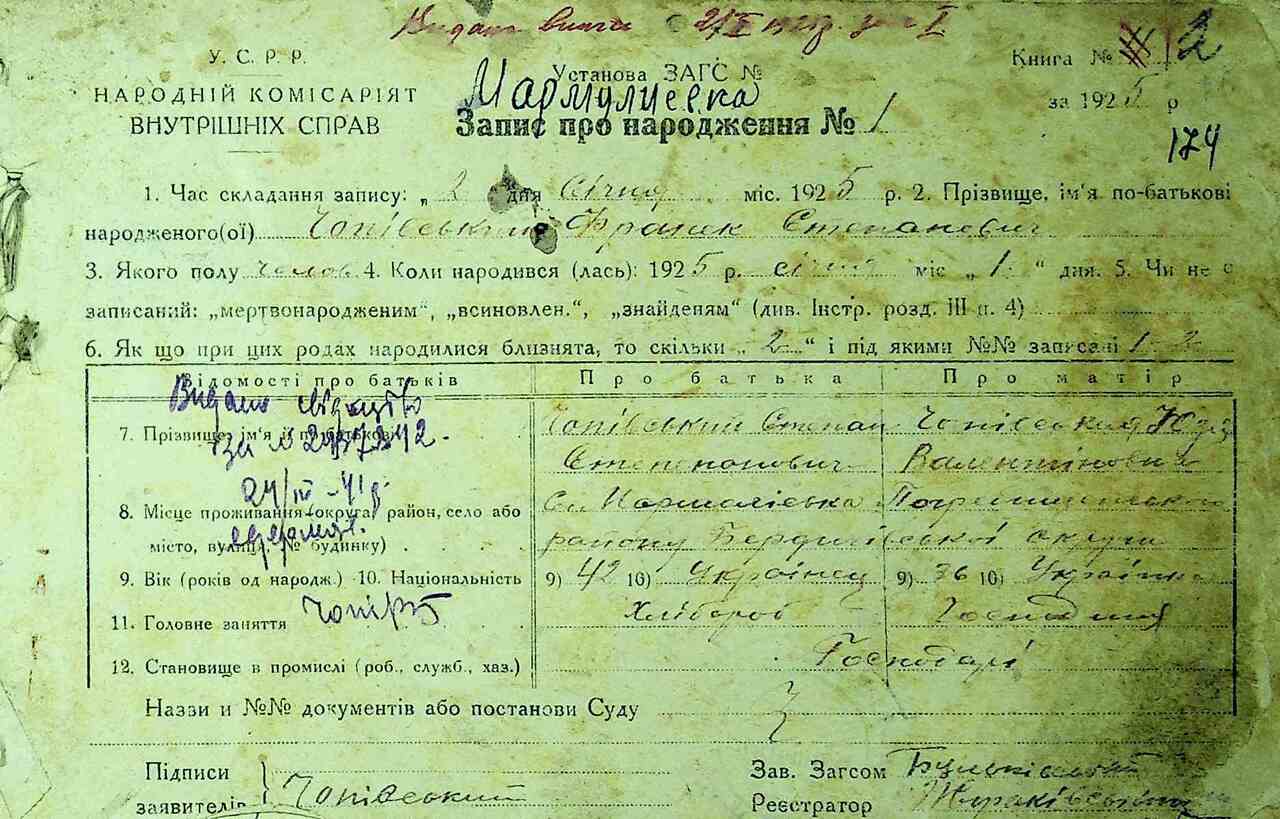 Видано
У. С. Р. Р.
НАРОДНІЙ КОМІСАРІЯТ
ВНУТРІШНІХ СПРАВ
Установа ЗАГС №
Запис про народження № 1
Книга № 2
за 1925 р
174
1. Час складання запису: „ 2 дня січня міс. 1925 р. 2. Прізвище, ім'я по-батькові
народженого(ої) Чопівський Франек Степанович
3. Якого полу челов 4. Коли народився (лась): 1925 р. січня міс „ 1 “ дня. 5. Чи не є
записаний: „мертвонародженим“, „всиновлен.“, „знайденям“ (див. Інстр. розд. III п. 4)
6. Як що при цих родах народилися близнята, то скільки „ 2 “ і під якими №№ записані 1-2
Відомості про батьків Про батька Про матір
Видано свідоцтво
7. Прізвище, ім'я й по-батькові Чопівський Степан Чопівська Юзя
за №
Степанович Валентіновна
8. Місце проживання (округа, район, село або
місто, вулиця, № будинку) району Бердичівської округи
9. Вік (років од народж.) 10. Національність 9) 42 10) Українец 9) 36 10) Українка
11. Головне заняття Хлібороб Господиня
12. Становище в промислі (роб., служб., хаз.) Господарі
Назви и №№ документів або постанови Суду
Підписи
заявителів Чопівський
Зав. Загсом
Реєстратор